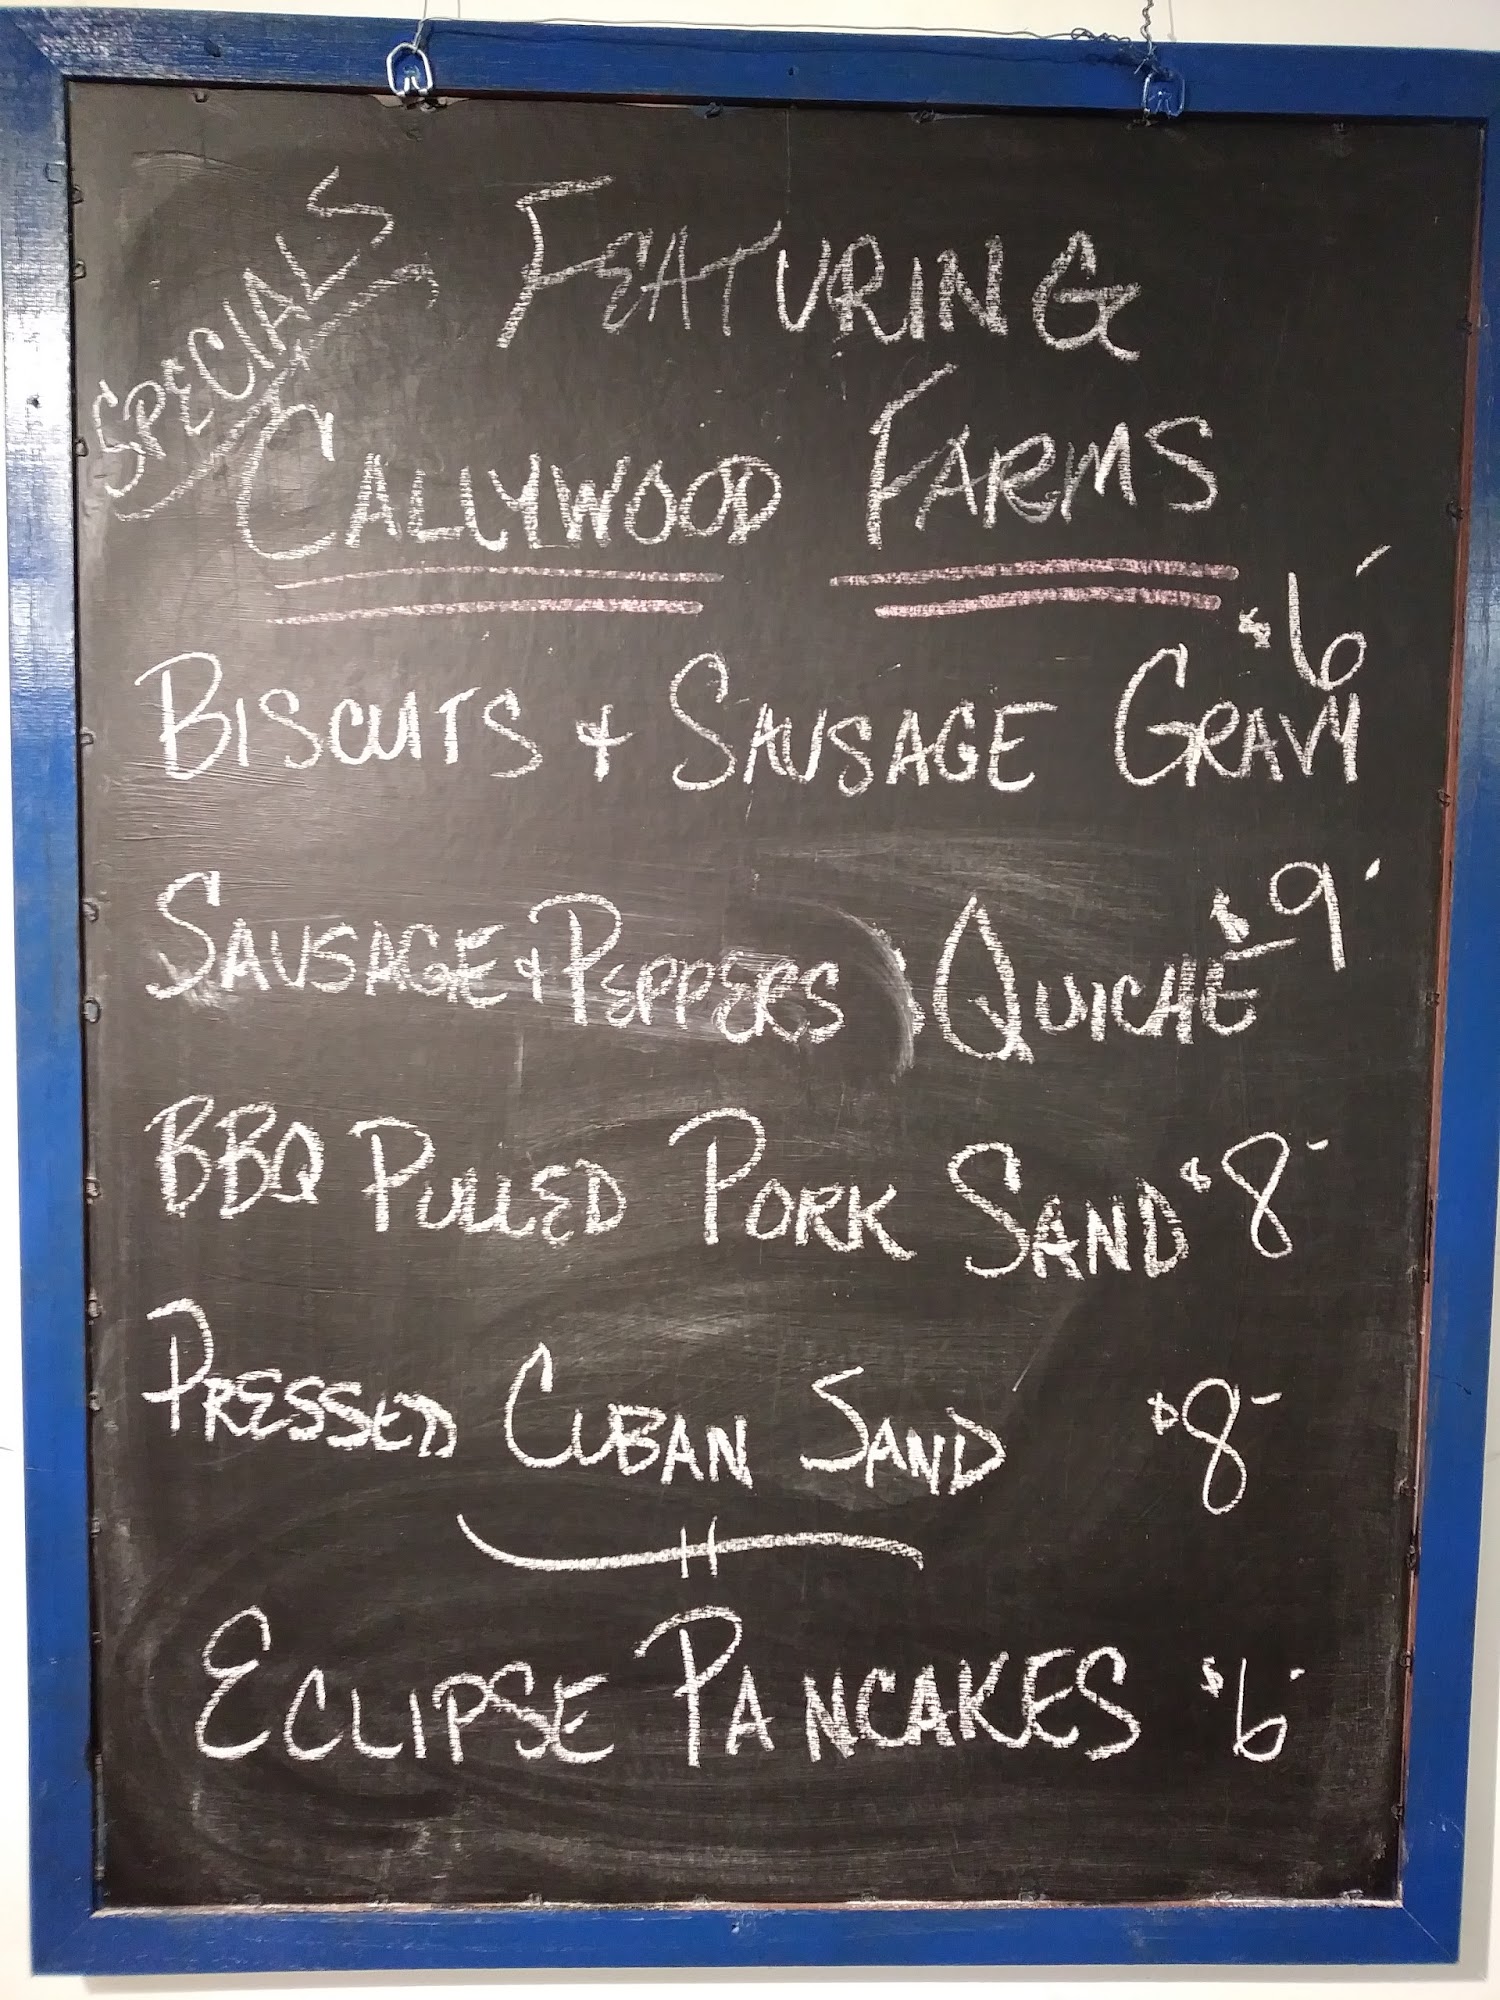 SPECIALS
FEATURING
CALLYWOOD FARMS
BISCUITS & SAUSAGE GRAVY $6-
SAUSAGE & PEPPERS QUICHE $9-
BBQ PULLED PORK SAND $8-
PRESSED CUBAN SAND $8-
ECLIPSE PANCAKES $6-